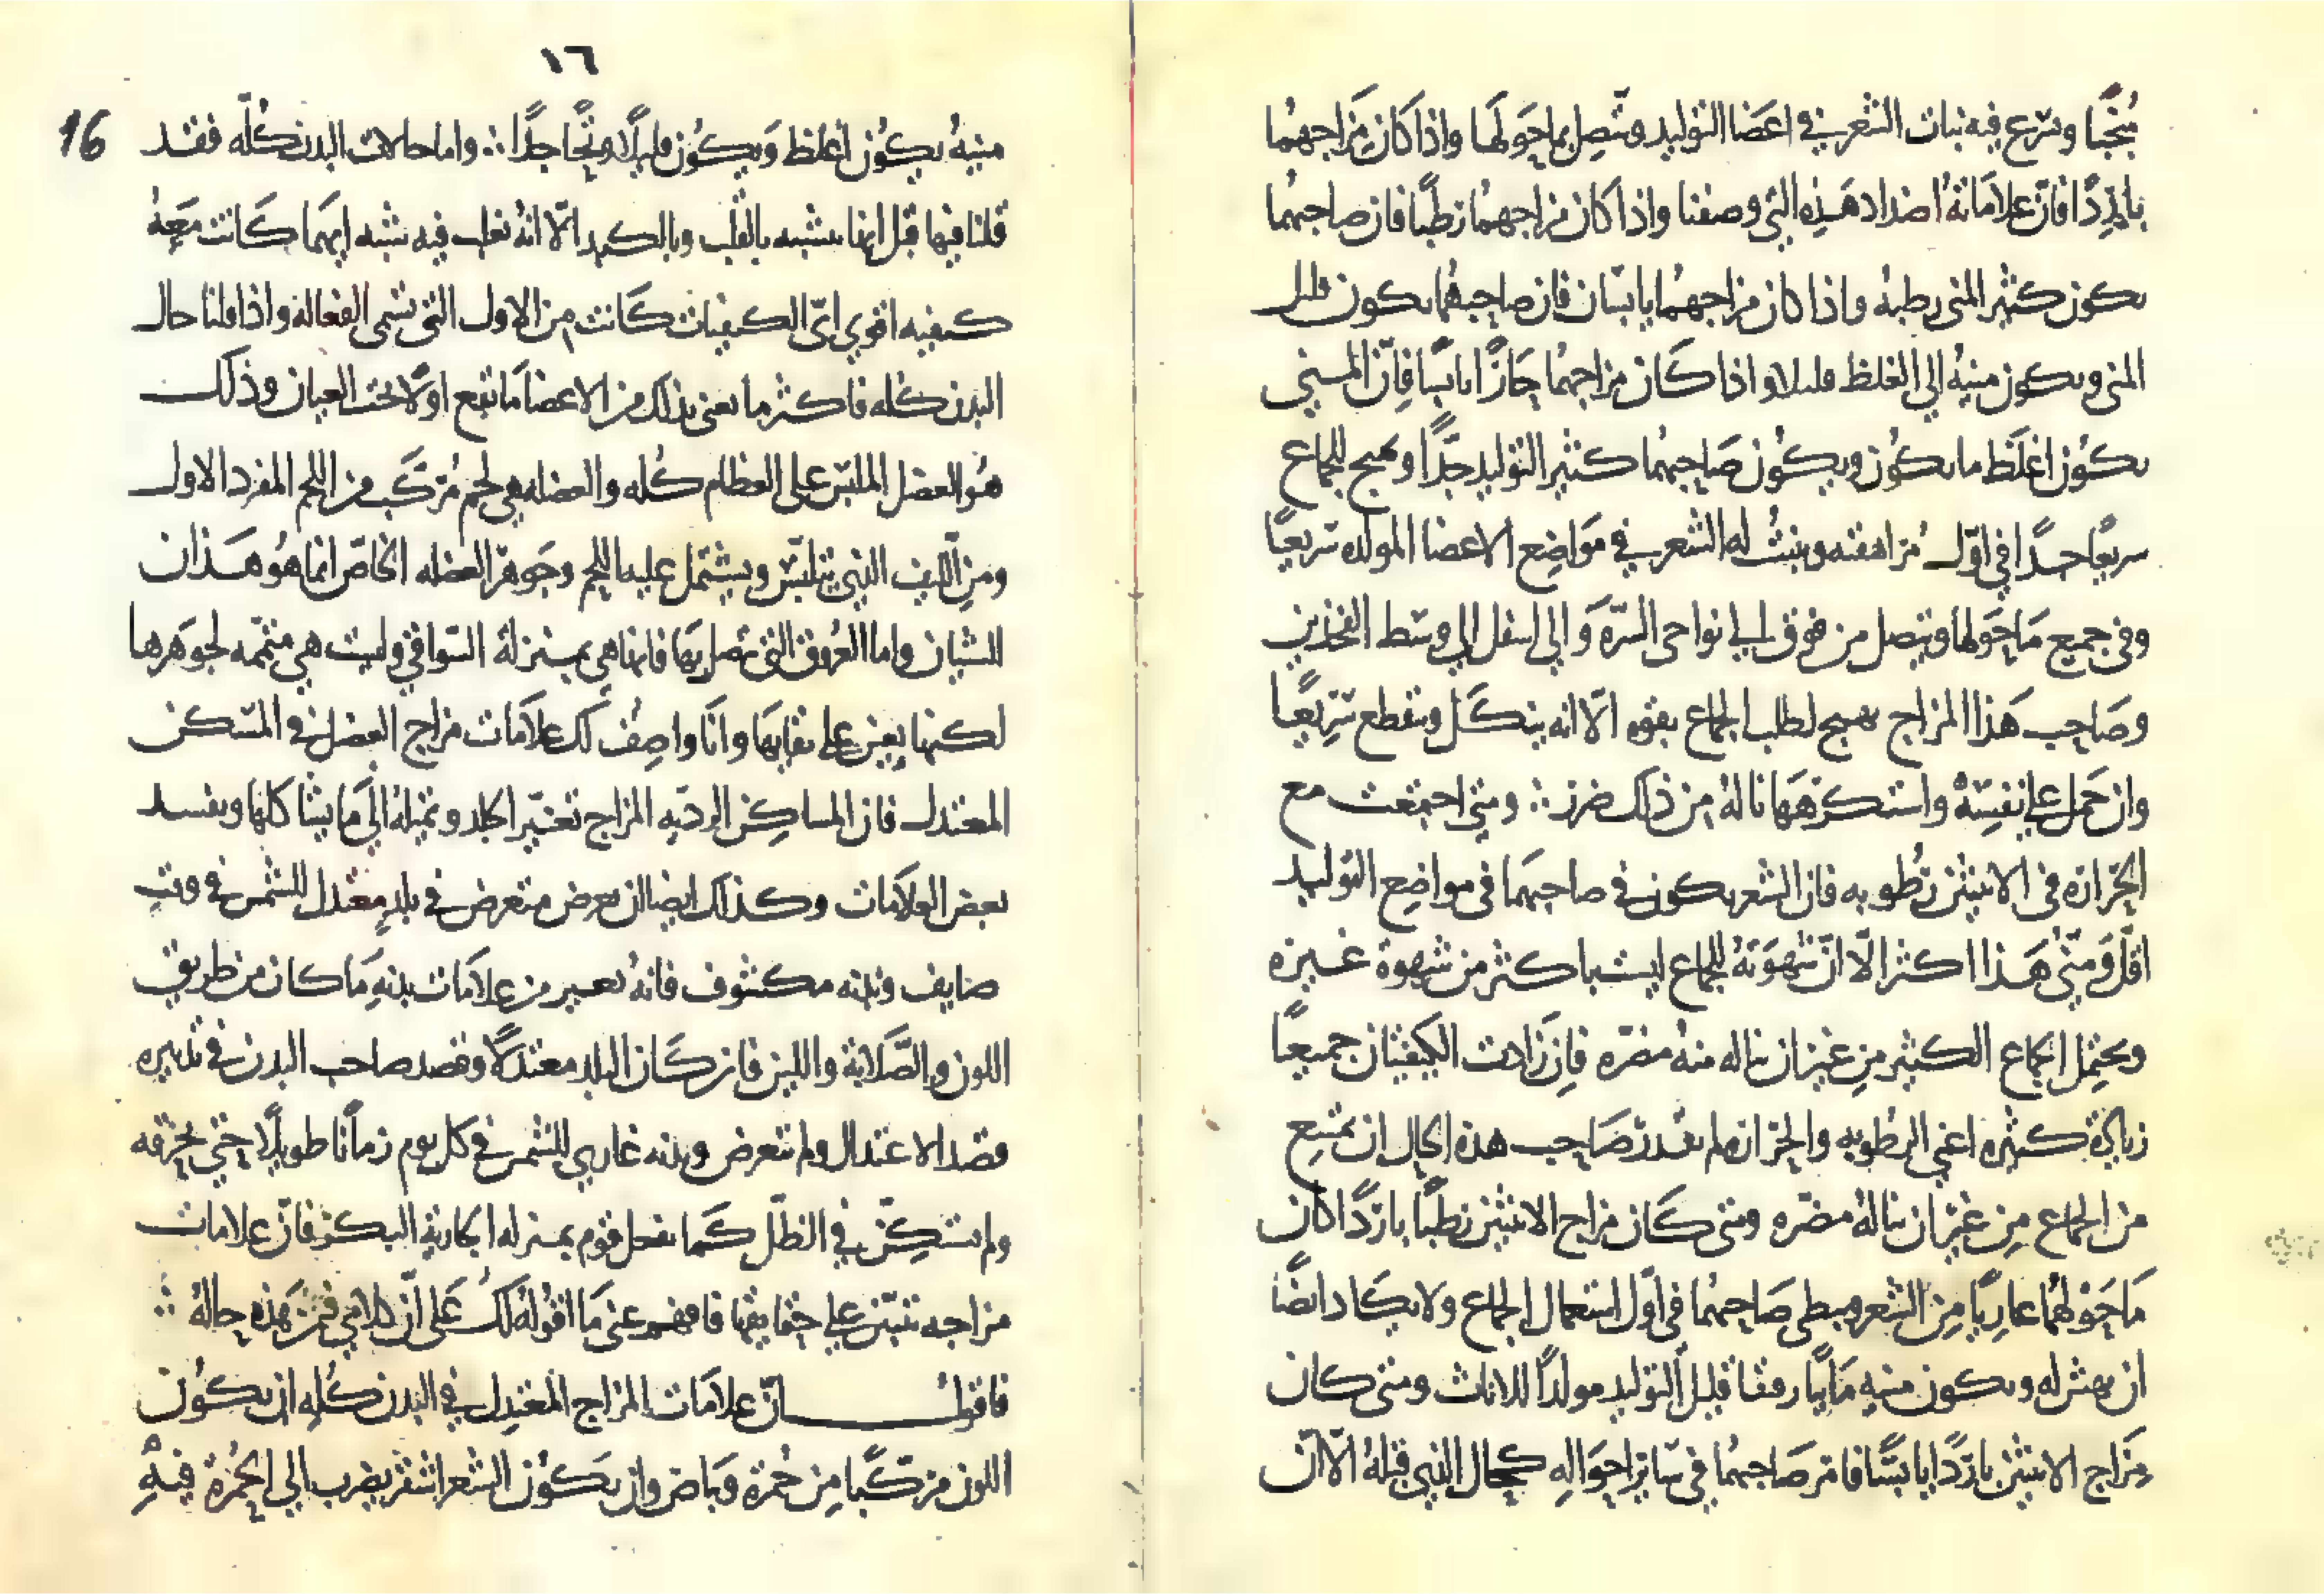 مُنجبًا ويسرع فيه نبات الشعر في اعضا التوليد ويتصل بما حولها واذا كان مزاجهما
باردًا فان علاماته اضداد هذه التي وصفنا واذا كان مزاجهما رطبًا فان صاحبهما
يكون كثير المنى رطبه واذا كان مزاجهما يابسان فان صاحبهما يكون قليل
المنى ويكون منيه الي الغلظ قليلا واذا كان مزاجهما حارًا يابسًا فان المني
يكون اغلظ ما يكون ويكون صاحبهما كثير التوليد جدًّا ويهيج للجماع
سريعًا جدًا في اوّل مراهقته وينبت له الشعر في مواضع الاعضا المولده سريعًا
وفى جميع ما حولها ويتصل من فوق الي نواحى السرّه والي اسفل الي وسط الفخذين
وصاحب هذا المزاج يهيج لطلب الجماع بقوه الّا انه ينكل وينقطع سريعًا
وان حمل على نفسه واستكرهها ناله من ذلك ضرر ∴ ومتي اجتمعت مع
الحراره فى الانثيين رطوبه فان الشعر يكون في صاحبهما فى مواضع التوليد
اقلّ ومنّي هذا اكثر الّا انّ شهوته للجماع ليست باكثر من شهوة غيره
ويحتمل الجماع الكثير من غير ان يناله منه مضرّه فان زادت الكيفيتان جميعًا
زيادة كثيره اعني الرطوبه والحراره لم يقدر صاحب هذه الحال ان يمتنع
من الجماع من غير ان يناله مضرّه ومتى كان مزاج الانثيين رطبًا باردًا كان
ما حولهما عاريًا من الشعر ويبطى صاحبهما فى اوّل استعمال الجماع ولا يكاد ايضًا
ان يهش له ويكون منيه مائيًا رقيقا قليل التوليد مولدًا للاناث ومتى كان
مزاج الانثيين باردًا يابسًا فامر صاحبهما فى ساير احواله كحال الذي قبله الّا انّ
١٦
16
منيه يكون اغلظ ويكون قليلًا ونحًا جدًا ∴ واما حالات البدن كلّه فقد
قلنا فيها قبل انها تشبه بالقلب وبالكبد الّا انه يغلب فيه شبه ايهما كانت معه
كيفيه اقوي ايّ الكيفيات كانت من الاول التى تسمى الفعاله واذا قلنا حال
البدن كله فاكثر ما نعنى بذلك من الاعضا ما تقع اولًا تحت العيان وذلك
هو العضل الملبّس على العظام كله والعضله هي لحم مُركّب من اللحم المفرد الاول
ومن الليف الذي يتلبّس ويشتمل عليه اللحم وجوهر العضله الخاصّ انما هو هذان
الشيان واما العروق التى تتصل بها فانها هي بمنزلة السواقي وليست هي متممه لجوهرها
لكنها يعين على بقايها وانا واصف لك علامات مزاج العضل في المسكن
المعتدل فان المساكن الرديّه المزاج تغيّر الجلد وتميله الى ما يشاكلها ويفسد
بعض العلامات وكذلك ايضا ان تعرض متعرض فى بلد معتدل للشمس فى وقت
صايف وبدنه مكشوف فانه يغير من علامات بدنه ما كان من طريق
اللون والصّلابة واللين فان كان البلد معتدلًا وقصد صاحب البدن في تدبيره
قصد الاعتدال ولم يتعرض وبدنه عاري للشمس في كل يوم زمانًا طويلًا حتى يحرقه
ولم يستكِنّ في الظلّ كما يفعل قوم بمنزله الجارية البكر فانّ علامات
مزاجه تتبيّن على حقايقها فافهم عنى ما اقوله لك على انّ كلامي فيمن هذه حاله ∴
فاقول انّ علامات المزاج المعتدل في البدن كله ان يكون
اللون مركّبا من حُمرة وبياض وان يكون الشعر اشقر يضرب الي الحُمرة فيه